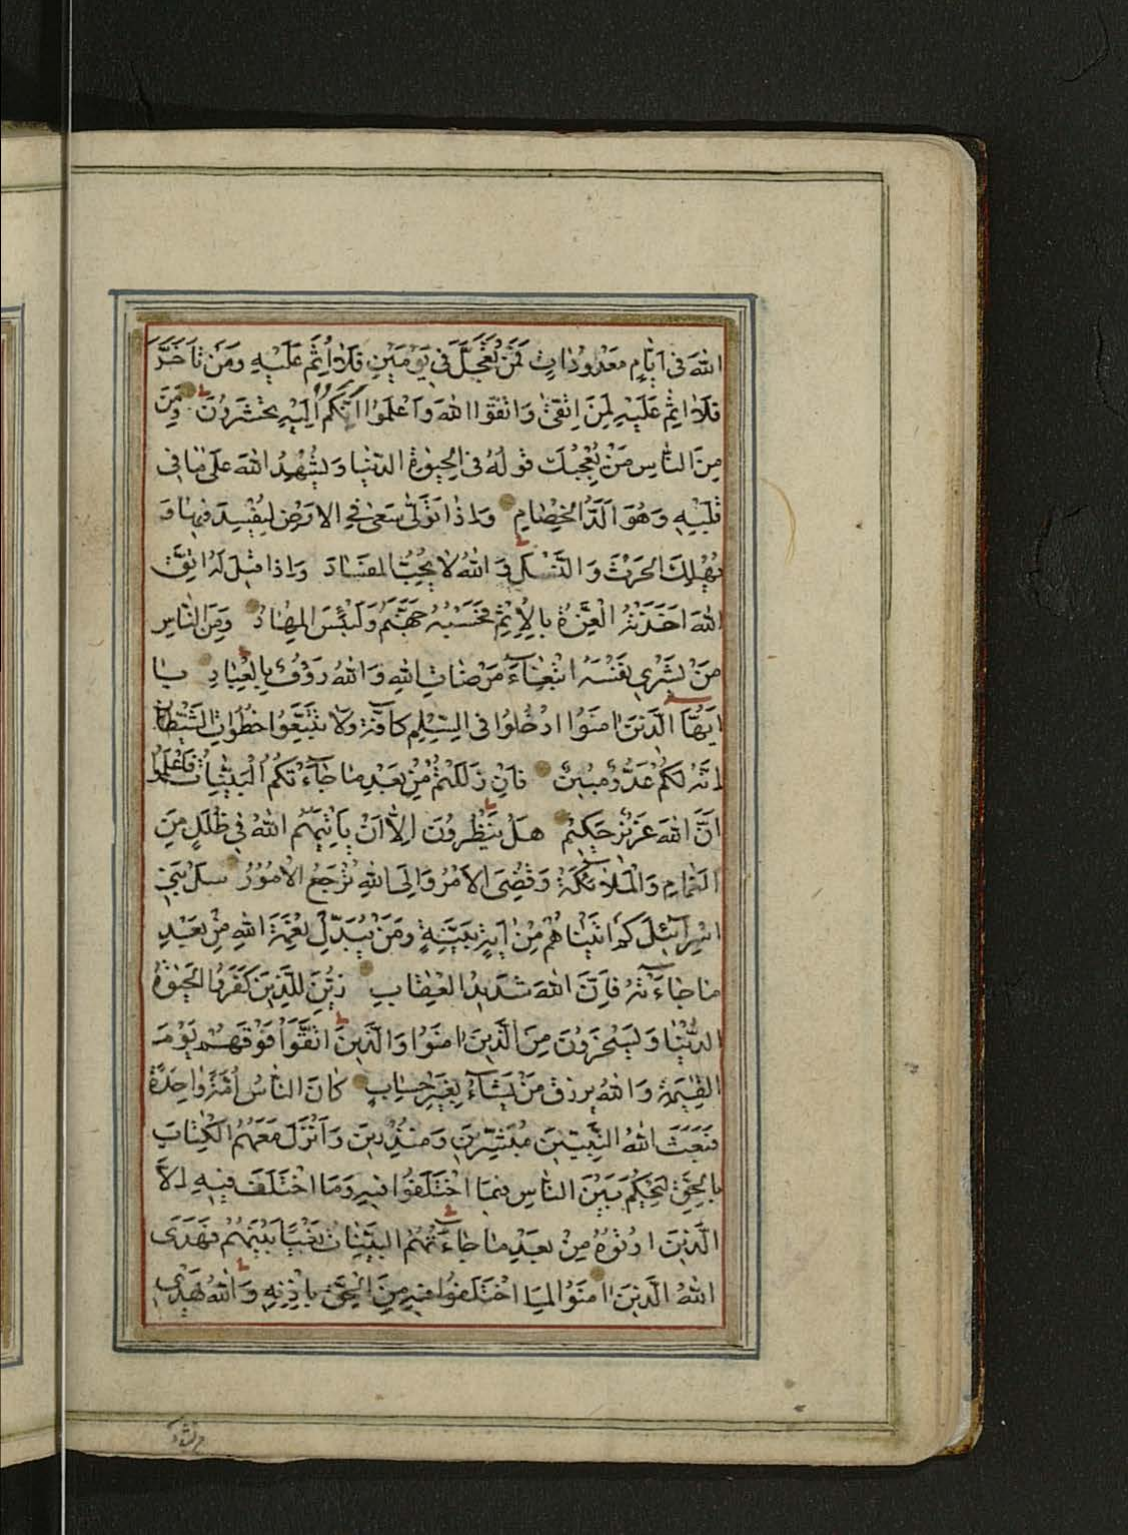 اللهَ فى اَيّٰامٍ مَعْدُودٰاتٍ فَمَنْ تَعَجَّلَ فى يَوْمَيْنِ فَلٰا اِثْمَ عَلَيْهِ وَمَنْ تَاَخَّرَ
فَلٰا اِثْمَ عَلَيْهِ لِمَنِ اتَّقىٰ وَاتَّقُوا اللهَ وَاعْلَمُوا اَنَّكُمْ اِلَيْهِ تُحْشَرُونَ وَمِنَ
مِنَ النّٰاسِ مَنْ يُعْجِبُكَ قَولُهُ فى الْحَيٰوةِ الدُّنْيٰا وَيُشْهِدُ اللهَ عَلىٰ مٰا فى
قَلْبِهِ وَهُوَ اَلَدُّ الْخِصٰامِ وَاِذٰا تَوَلّىٰ سَعىٰ فى الاَرْضِ لِيُفْسِدَ فيهٰا وَ
يُهْلِكَ الْحَرْثَ وَالنَّسْلَ وَ اللهُ لاٰ يُحِبُّ الْفَسٰادَ وَاِذا قيلَ لَهُ اتَّقِ
اللهَ اَخَذَتْهُ الْعِزَّةُ بِالْاِثْمِ فَحَسْبُهُ جَهَنَّمُ وَلَبِئْسَ الْمِهٰادُ وَمِنَ النّاسِ
مَنْ يَشْرى نَفْسَهُ ابْتِغٰاءَ مَرْضٰاتِ اللهِ وَاللهُ رَؤُفٌ بِالْعِبٰادِ يٰا
اَيُّهَا الَّذينَ اٰمَنُوا ادْخُلُوا فى السِّلْمِ كافَّةً وَلاٰ تَتَّبِعُوا خُطُوٰاتِ الشَّيْطٰانِ
اِنَّهُ لَكُمْ عَدُوٌّ مُبينٌ فَاِنْ زَلَلْتُمْ مِنْ بَعْدِ مٰا جٰاءَتْكُمُ الْبَيِّنٰاتُ فَاعْلَمُوا
اَنَّ اللهَ عَزيزٌ حَكيمٌ هَلْ يَنْظُرُونَ اِلاّٰ اَنْ يَاْتِيَهُمُ اللهُ فى ظُلَلٍ مِنَ
الْغَمٰامِ وَالْمَلٰائِكَةُ وَقُضِىَ الاَمْرُ وَاِلَى اللهِ تُرْجَعُ الْاُمُورُ سَلْ بَنى
اسْرائيلَ كَمْ اٰتَيْنٰاهُمْ مِنْ اٰيَةٍ بَيِّنَةٍ وَمَنْ يُبَدِّلْ نِعْمَةَ اللهِ مِنْ بَعْدِ
مٰا جٰاءَتْهُ فَاِنَّ اللهَ شَديدُ الْعِقٰابِ زُيِّنَ لِلَّذينَ كَفَرُوا الْحَيٰوةُ
الدُّنْيٰا وَيَسْخَرُونَ مِنَ الَّذينَ اٰمَنُوا وَالَّذينَ اتَّقَوْا فَوْقَهُمْ يَوْمَ
الْقِيٰمَةِ وَاللهُ يَرزُقُ مَنْ يَشٰاءُ بِغَيْرِ حِسٰابٍ كٰانَ النّاسُ اُمَّةً وٰاحِدَةً
فَبَعَثَ اللهُ النَّبِيّينَ مُبَشِّرينَ وَمُنْذِرينَ وَاَنْزَلَ مَعَهُمُ الْكِتٰابَ
بِالْحَقِّ لِيَحْكُمَ بَيْنَ النّٰاسِ فيمَا اخْتَلَفُوا فيهِ وَمَا اخْتَلَفَ فيهِ اِلاَّ
الَّذينَ اوُتوُهُ مِنْ بَعْدِ مٰا جٰاءَتْهُمُ الْبَيِّنٰاتُ بَغْيًا بَيْنَهُمْ فَهَدَى
اللهُ الَّذينَ اٰمَنُوا لِمَا اخْتَلَفُوا فيهِ مِنَ الْحَقِّ بِاِذْنِهِ وَاللهُ يَهْدى